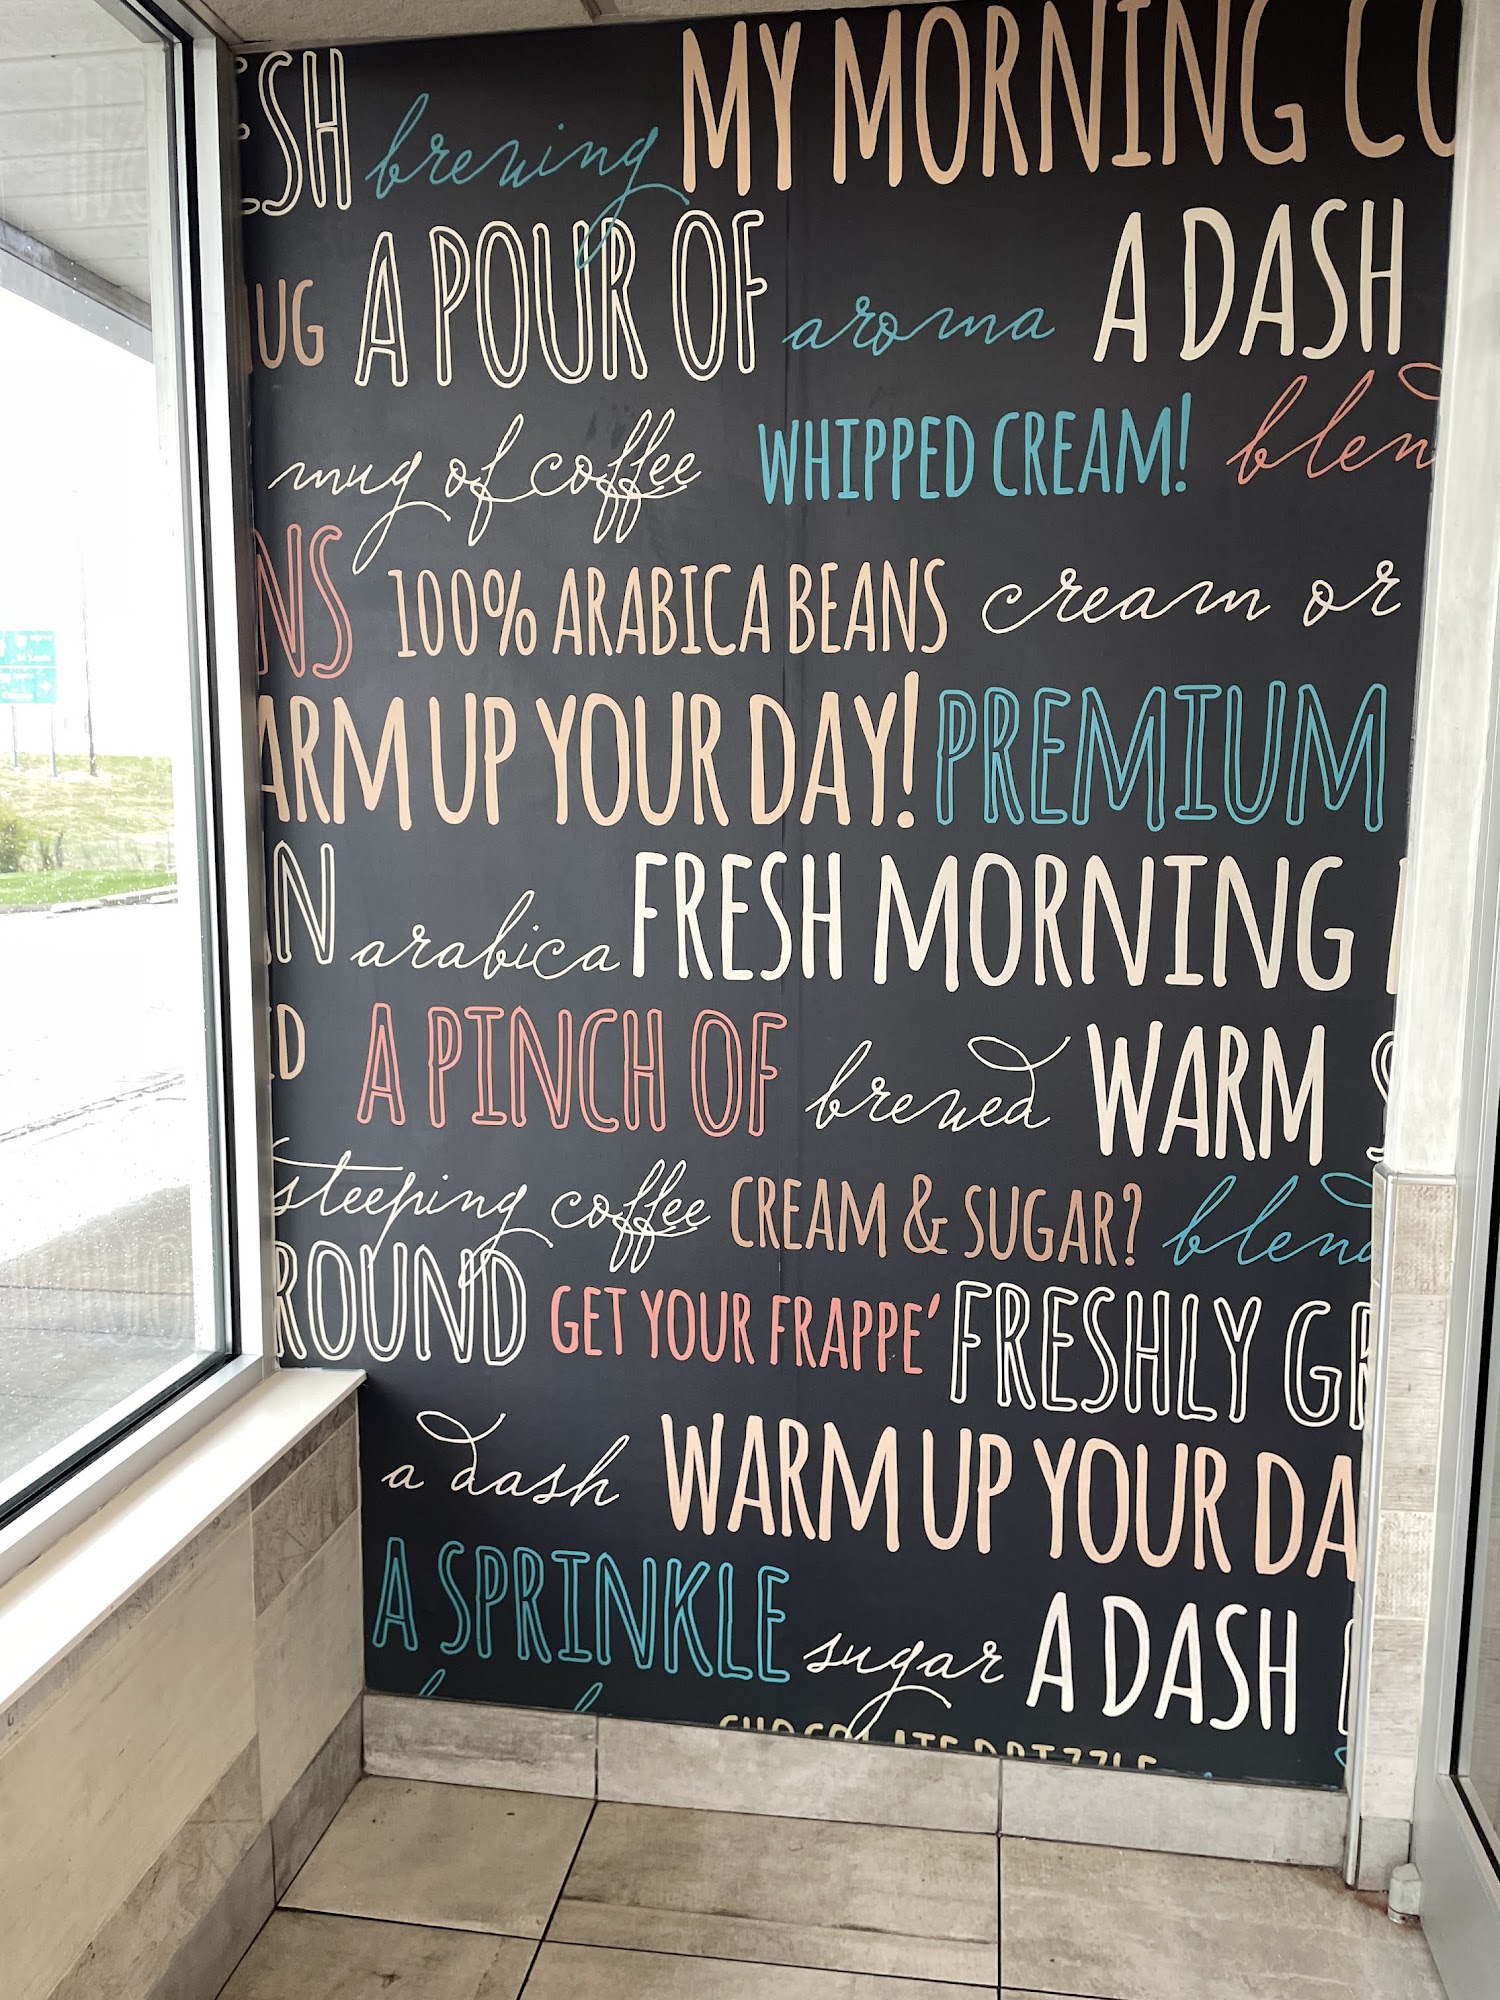 ESH brewing MY MORNING CO
UG A POUR OF aroma A DASH
mug of coffee WHIPPED CREAM! blen
NS 100% ARABICA BEANS cream or
ARM UP YOUR DAY! PREMIUM
N arabica FRESH MORNING
D A PINCH OF brewed WARM
steeping coffee CREAM & SUGAR? blend
ROUND GET YOUR FRAPPE' FRESHLY GR
a dash WARM UP YOUR DA
A SPRINKLE sugar A DASH
CHOCOLATE DRIZZLE